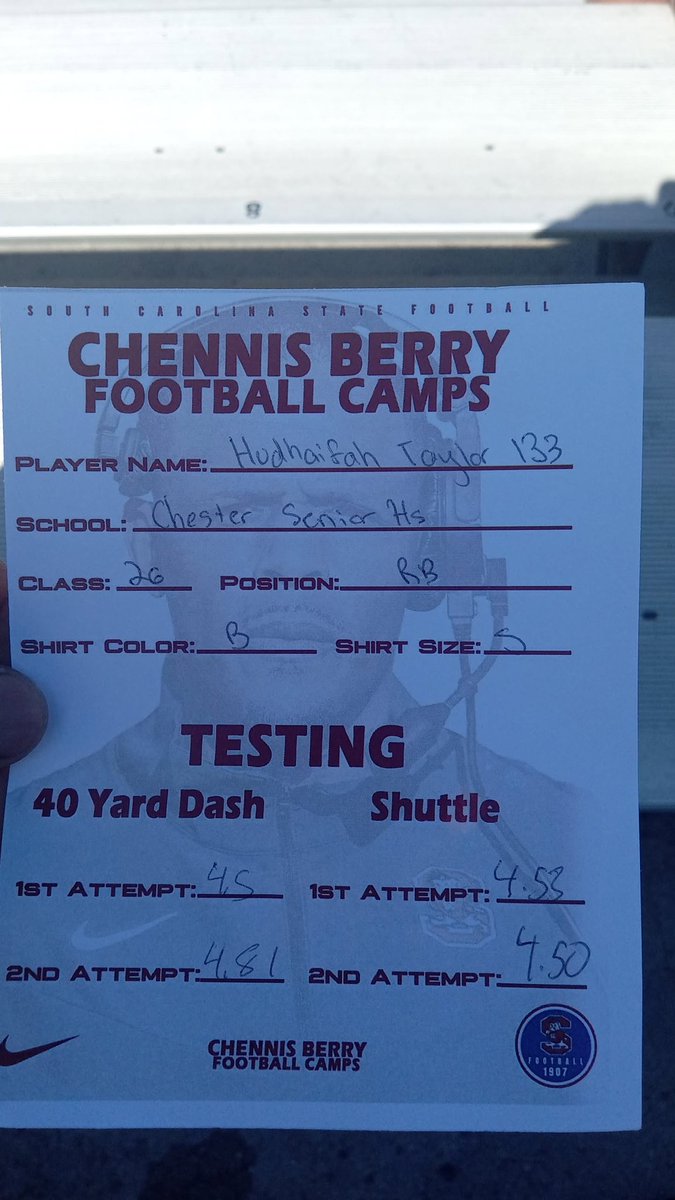 SOUTH CAROLINA STATE FOOTBALL
CHENNIS BERRY
FOOTBALL CAMPS
PLAYER NAME: Hudhaifah Taylor 133
SCHOOL: Chester Senior Hs
CLASS: 26 POSITION: RB
SHIRT COLOR: B SHIRT SIZE: S
TESTING
40 Yard Dash Shuttle
1ST ATTEMPT: 4.5 1ST ATTEMPT: 4.53
2ND ATTEMPT: 4.81 2ND ATTEMPT: 4.50
CHENNIS BERRY
FOOTBALL CAMPS
S
FOOTBALL
1907